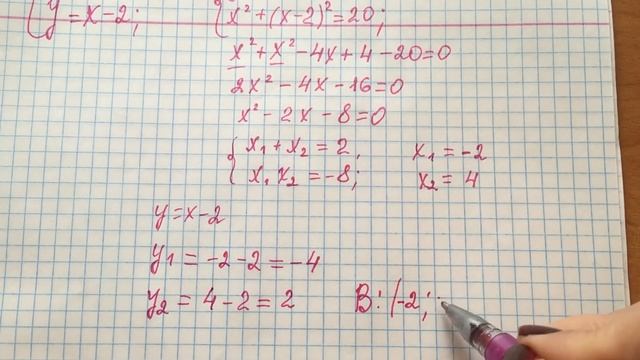 { y = x - 2; { x² + (x-2)² = 20;
x² + x² - 4x + 4 - 20 = 0
2x² - 4x - 16 = 0
x² - 2x - 8 = 0
{ x₁ + x₂ = 2, x₁ = -2
x₁ x₂ = -8; x₂ = 4
y = x - 2
y₁ = -2 - 2 = -4
y₂ = 4 - 2 = 2 В: (-2;